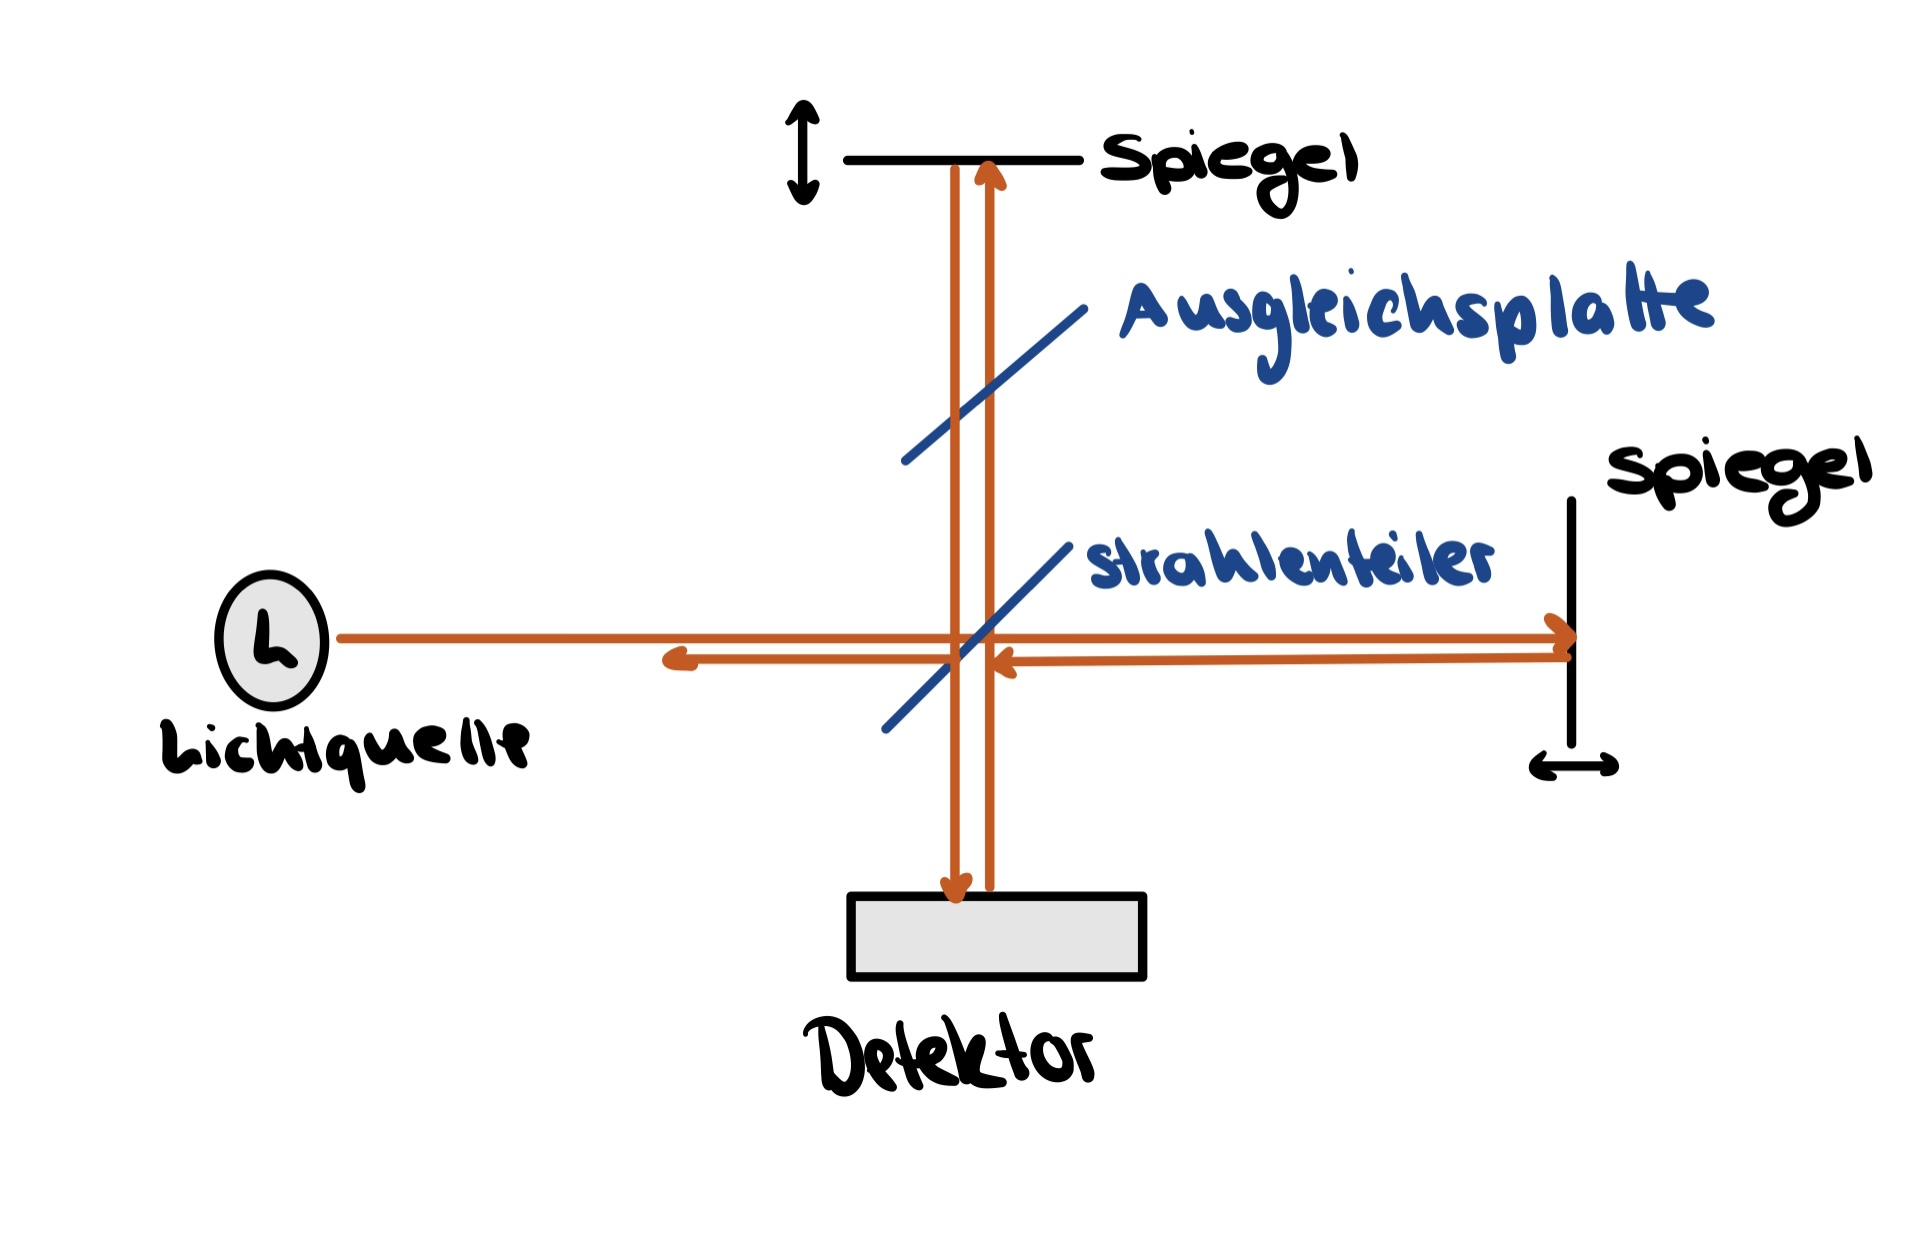 Spiegel
Ausgleichsplatte
Spiegel
Strahlenteiler
L
Lichtquelle
Detektor